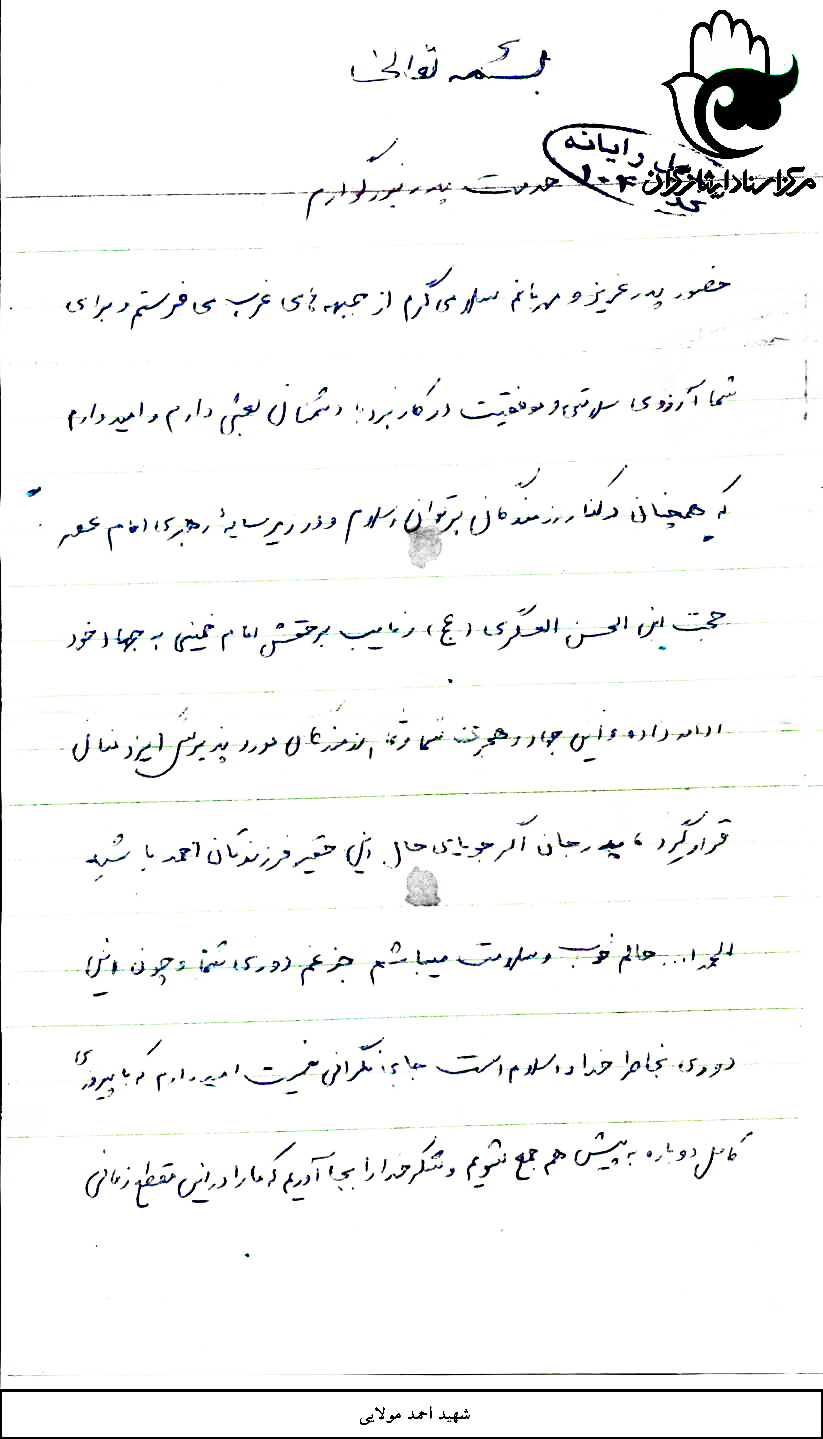 بسمه تعالی
رایانه
مرکز اسناد ایثارگران
خدمت پدر بزرگوارم
حضور پدر عزیز و مهربانم سلامی گرم از جبهه های غرب می فرستم و برای
شما آرزوی سلامتی و موفقیت در کار نبرد با دشمنان بعثی دارم و امیدوارم
که همچنان در کنار رزمندگان پرتوان اسلام و در زیر سایۀ رهبری امام عصر
حجت ابن الحسن العسگری (عج) و نایب برحقش امام خمینی به جهاد خود
ادامه داده و این جهاد و هجرت شما و رزمندگان مورد پذیرش ایزد منان
قرار گیرد، پدر جان اگر جویای حال این حقیر فرزندتان احمد باشید
الحمدا... حالم خوب و سلامت میباشم جز غم دوری شما و چون این
دوری بخاطر خدا و اسلام است جای نگرانی نیست امیدوارم که با پیروزی
کامل دوباره به پیش هم جمع شویم و شکر خدا را بجا آوریم که ما را در این مقطع زمانی
شهید احمد مولایی